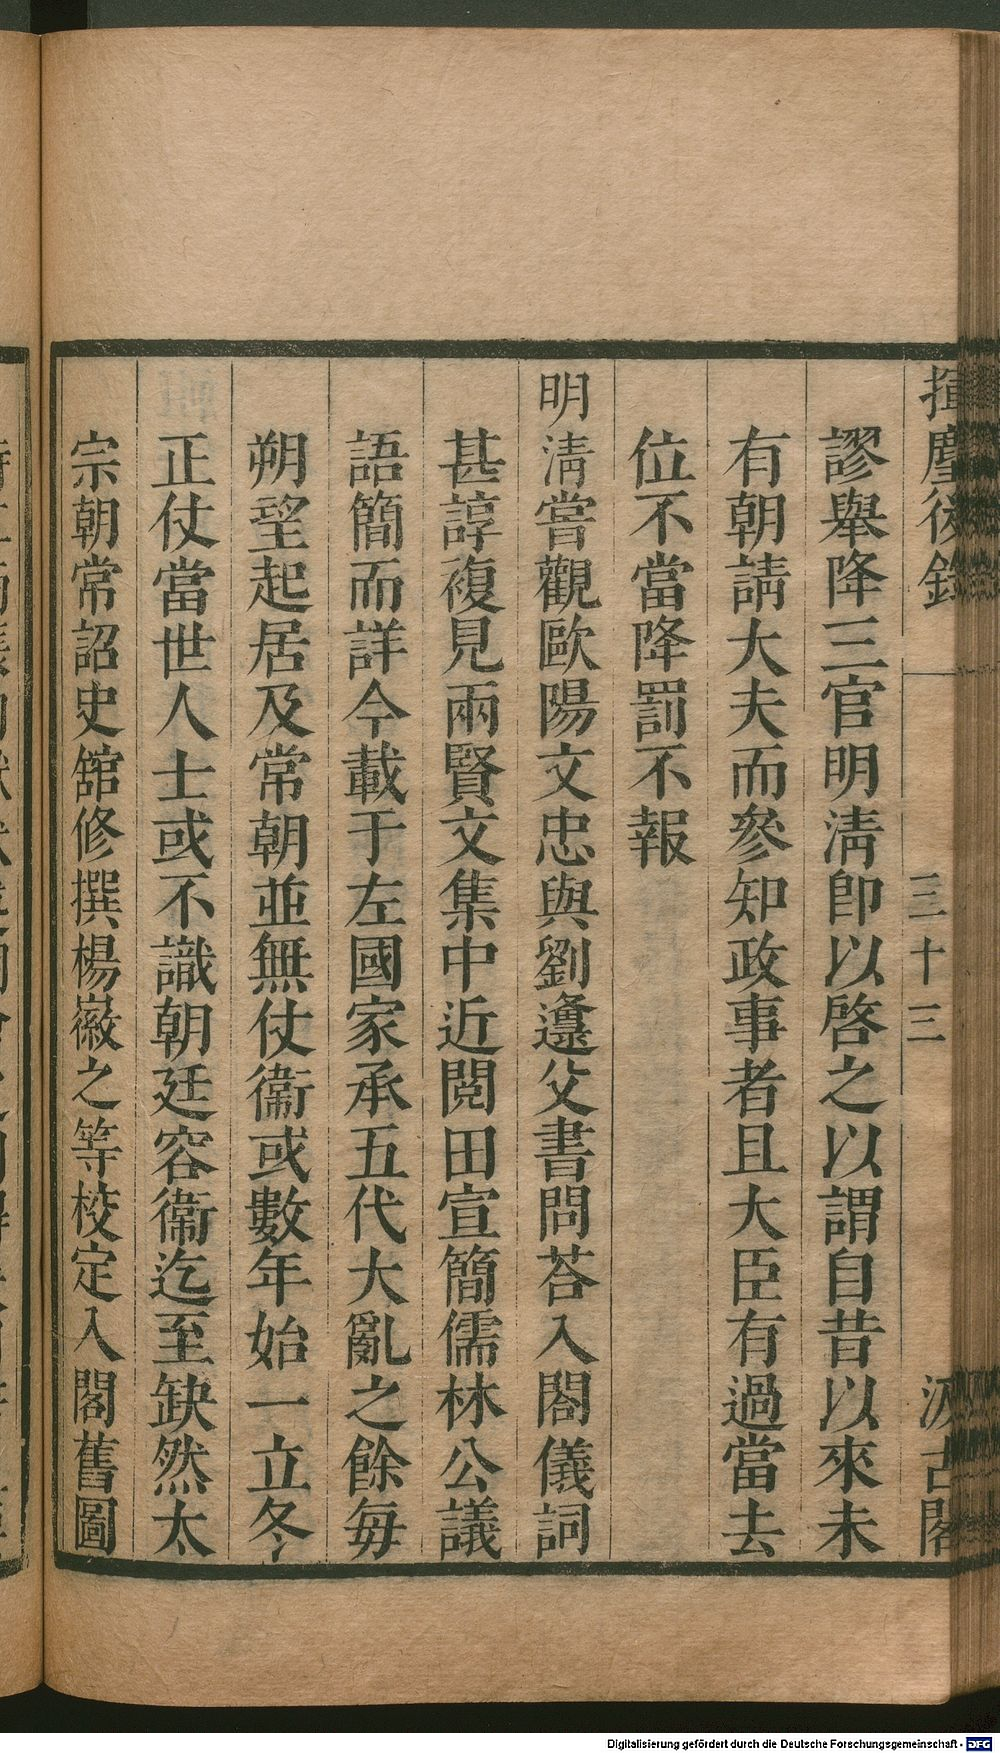 揮麈後錄
三十三
汲古閣
謬舉降三官明淸卽以啓之以謂自昔以來未
有朝請大夫而參知政事者且大臣有過當去
位不當降罰不報
明淸嘗觀歐陽文忠與劉邍父書問荅入閤儀詞
甚諄複見兩賢文集中近閱田宣簡儒林公議
語簡而詳今載于左國家承五代大亂之餘每
朔望起居及常朝並無仗衞或數年始一立冬
正仗當世人士或不識朝廷容衞迄至缺然太
宗朝常詔史舘修撰楊徽之等校定入閤舊圖
Digitalisierung gefördert durch die Deutsche Forschungsgemeinschaft - DFG